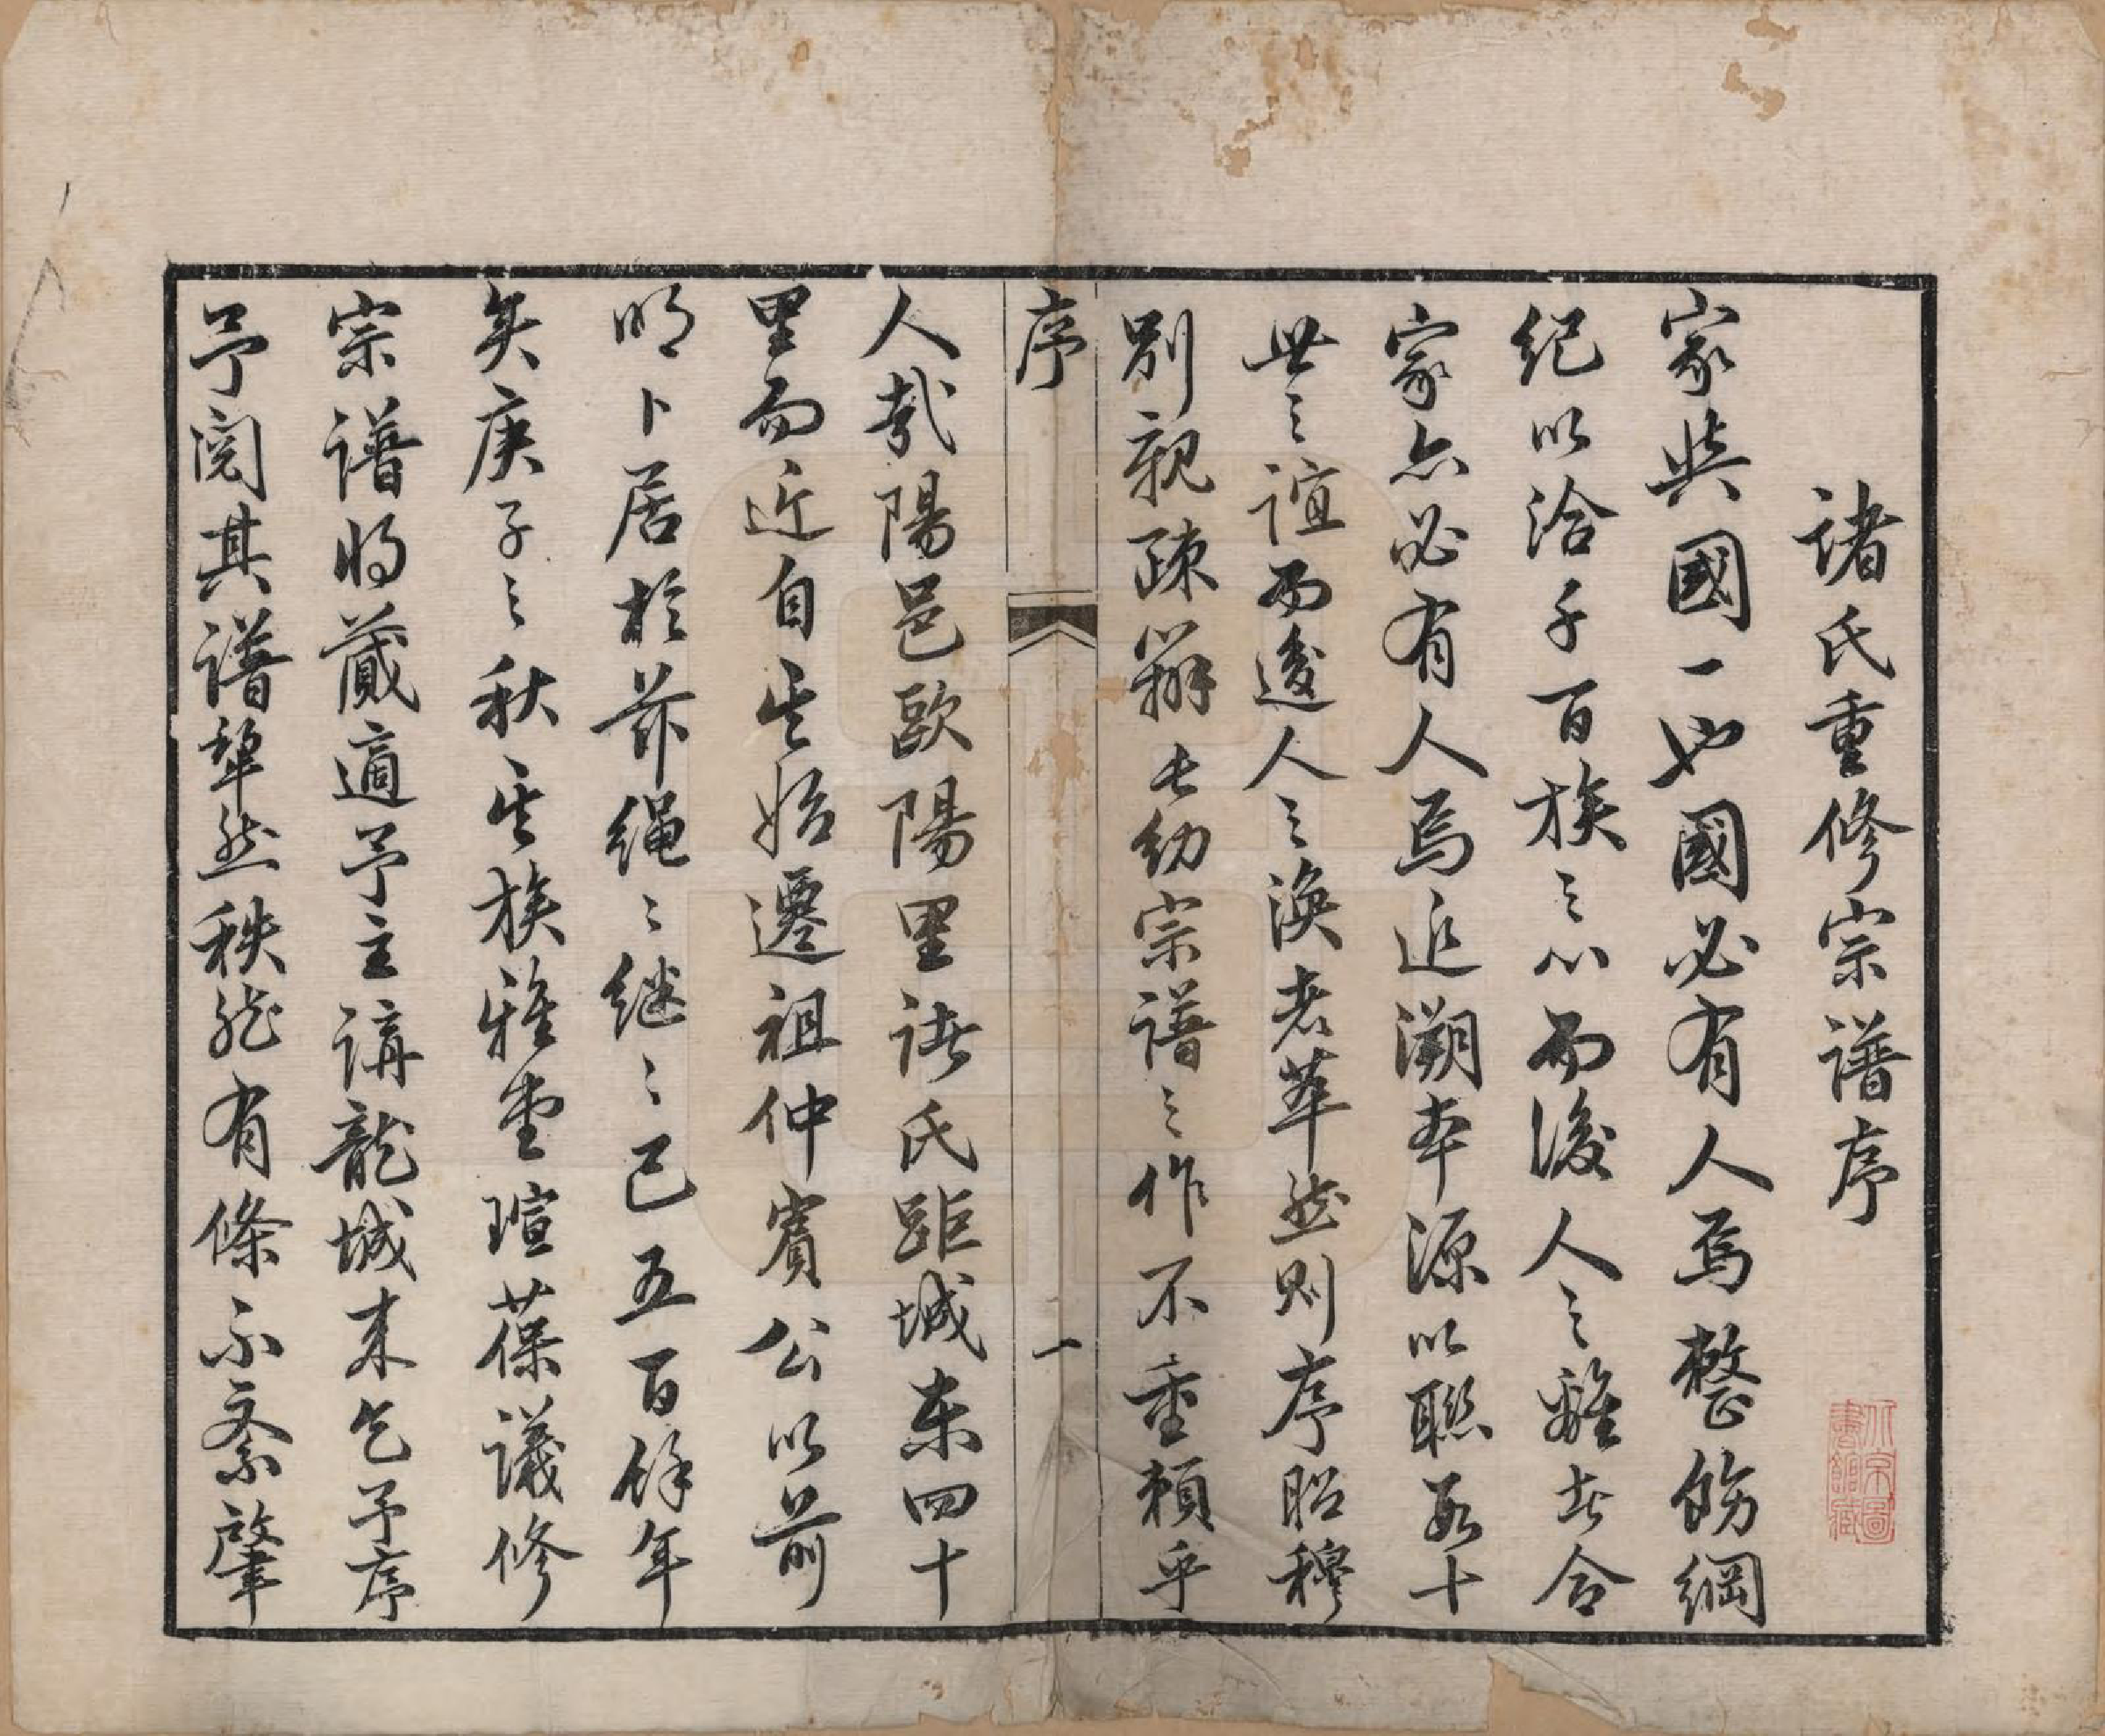 諸氏重修宗譜序
家與國一也國必有人焉整飭綱
紀以洽千百族之心而後人之離者合
家亦必有人焉追溯本源以聯數十
世之誼而後人之渙者萃然則序昭穆
別親疎辨長幼宗譜之作不重賴乎
序
一
人哉陽邑歐陽里諸氏距城東四十
里而近自其始遷祖仲賓公以前
明卜居於茲繩〻繼〻已五百餘年
矣庚子之秋其族雅堂瑄葆議修
宗譜將蕆適予主講龍城來乞予序
予閱其譜犂然秩然有條不紊肇